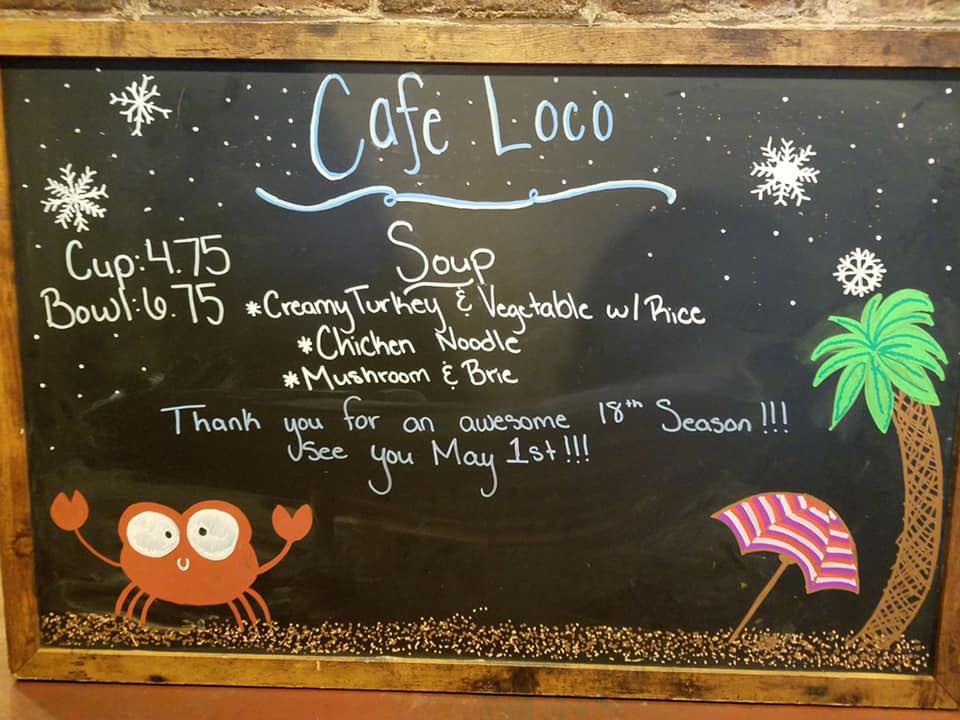 Cafe Loco
Cup: 4.75
Bowl: 6.75
Soup
*Creamy Turkey & Vegetable w/ Rice
*Chicken Noodle
*Mushroom & Brie
Thank you for an awesome 18th Season!!!
See you May 1st!!!